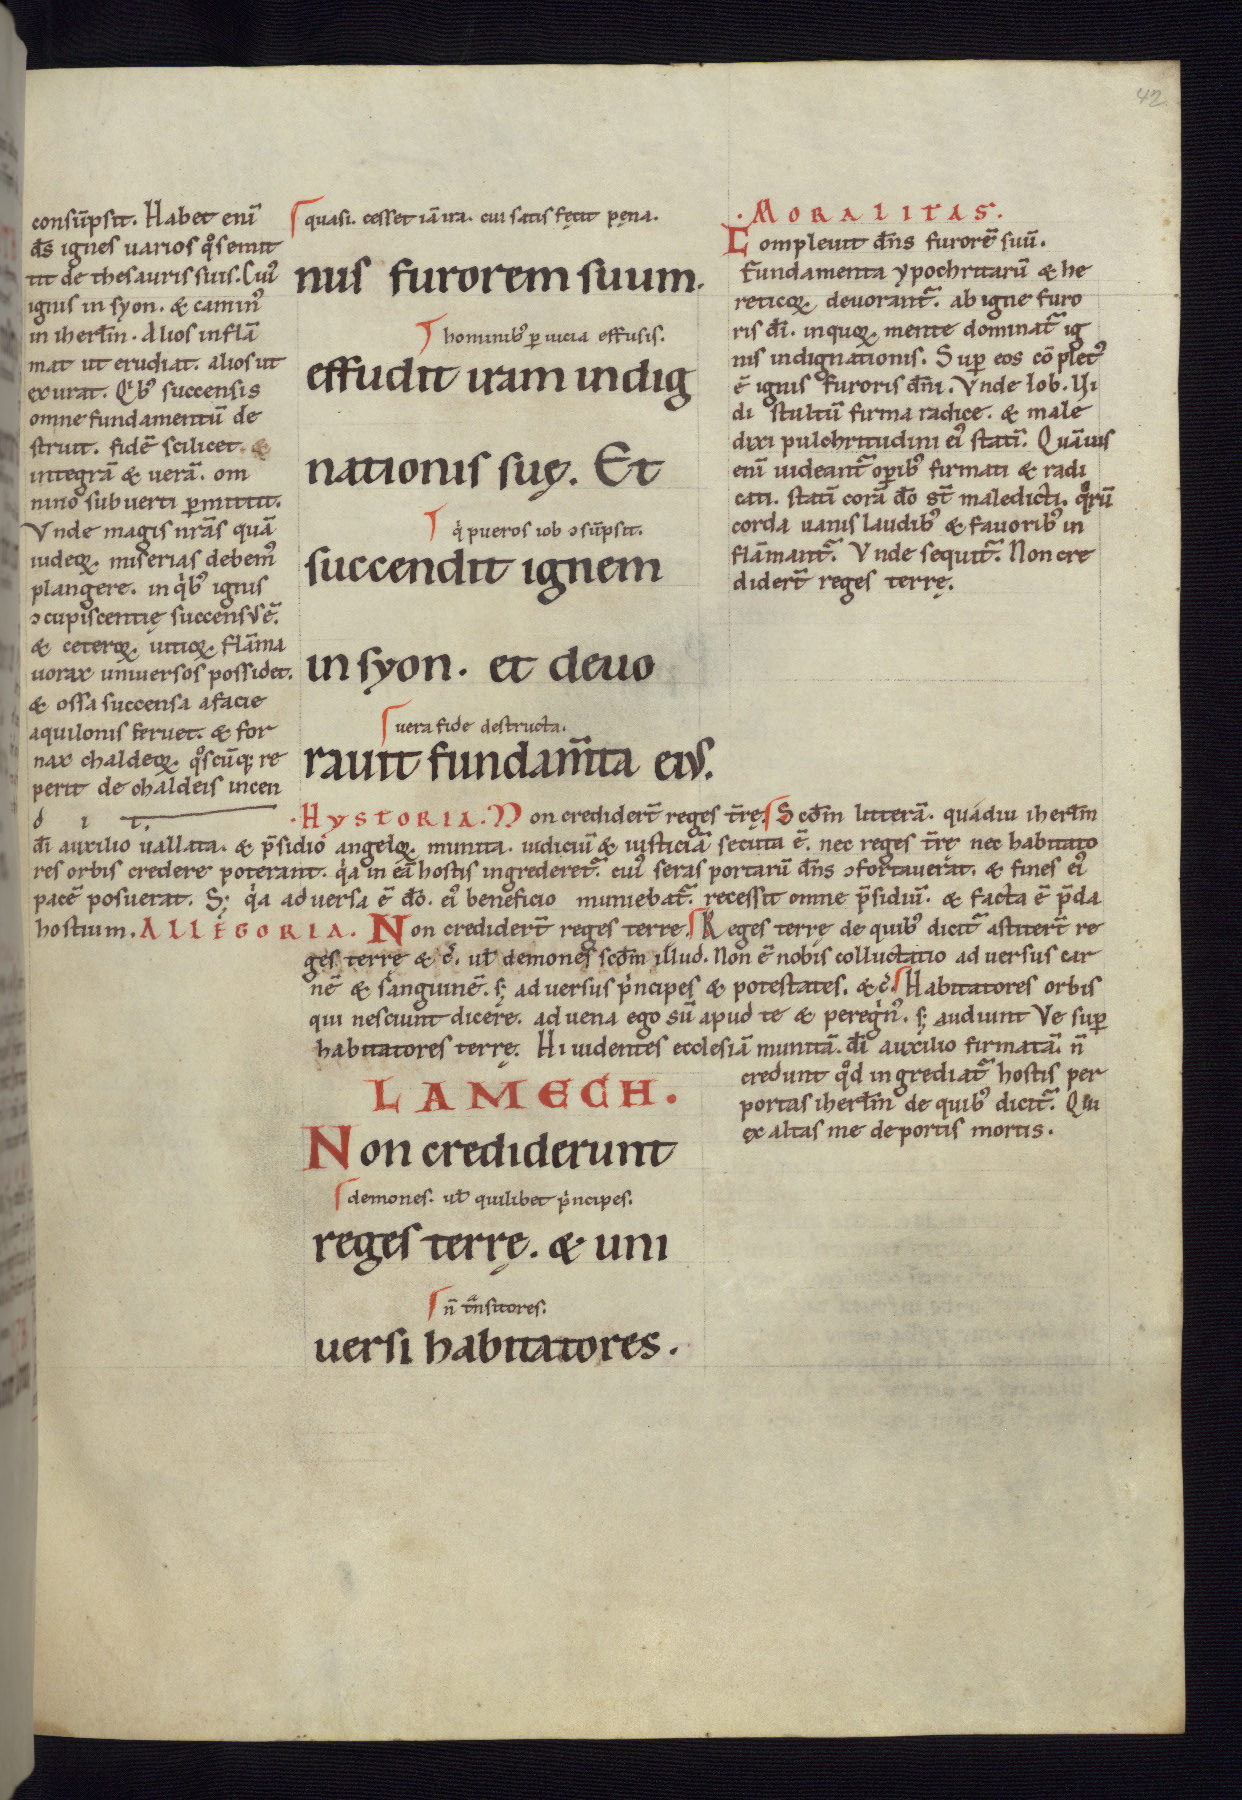 42
consūpsit. Habet eni᷒
d̄s ignes uarios q°s emit
tit de thesauris suis. Cuiꝰ
ignis in syon. & caminꝰ
in iherl̄m. Alios inflā
mat ut erudiat. alios ut
exurat. Qibꝰ succensis
omne fundamentū de
struit. fidē scilicet. &
integrā & uerā. om
nino subuerti ꝑmittit.
Vnde magis nr̄as quā
iudeoꝝ miserias debemꝰ
plangere. in qibꝰ ignis
ↄcupiscentię succensus ē.
& ceteroꝝ uitioꝝ flāma
uorax uniuersos possidet.
& ossa succensa a facie
aquilonis feruet. & for
nax chaldeoꝝ q°scūq; re
perit de chaldeis incen
d i t.
quasi. cesset iā ira. cui satis fęcit pęna.
nus furorem suum.
hominibꝰ ꝑ iuicia effusis.
effudit iram indig
nationis suę. Et
qi pueros iob ↄsūpsit.
succendit ignem
in syon. et deuo
uera fide destructa.
rauit fundam̄ta eiꝰ.
.MORALITAS.
Compleuit dn̄s furorē suū.
Fundamenta ypochritarū & he
reticoꝝ deuorant᷑. ab igne furo
ris dī. in quoꝝ mente dominat᷑ ig
nis indignationis. Suꝑ eos cōpletꝰ
ē ignis furoris dn̄i. Vnde Iob. Ui
di stultū firma radice. & male
dixi pulchritudini eiꝰ statī. Quāuis
enī uideant᷑ oꝑibꝰ firmati & radi
cati. statī corā dō st̄ maledicti. q°rū
corda uanis laudibꝰ & fauoribꝰ in
flāmant᷑. Vnde sequit᷑. Non cre
didert̄ reges terrę.
.HYSTORIA. Non credidert̄ reges tr̄ę. Scd̄m litterā. quādiu iherl̄m
dī auxilio uallata. & p̄sidio angeloꝝ munita. iudiciū & iusticiā secuta ē. nec reges tr̄ę nec habitato
res orbis credere poterant. qia in eā hostis ingrederet᷑. cuiꝰ seras portarū dn̄s ↄfortauerat. & fines eiꝰ
pacē posuerat. S; qia aduersa ē dō. eiꝰ beneficio muniebat᷑. recessit omne p̄sidiū. & facta ē p̄da
hostium. ALLEGORIA. Non credidert̄ reges terre. Reges terrę de quibꝰ dicit᷑ astitert̄ re
ges terrę & c̄. ul̄ demones scd̄m illud. Non ē nobis colluctatio aduersus car
nē & sanguinē. s; aduersus pincipes & potestates. & c̄. Habitatores orbis
qui nesciunt dicere. aduena ego sū apud te & peregin᷒. s; audiunt Ve suꝑ
habitatores terrę. Hi uidentes ecclesiā munitā. dī auxilio firmatā. n̄
credunt q°d ingrediat᷑ hostis per
portas iherl̄m de quibꝰ dicit᷑. Qui
exaltas me de portis mortis.
LAMECH.
Non crediderunt
demones. ul̄ quilibet pincipes.
reges terrę. & uni
n̄ tansitores.
uersi habitatores.